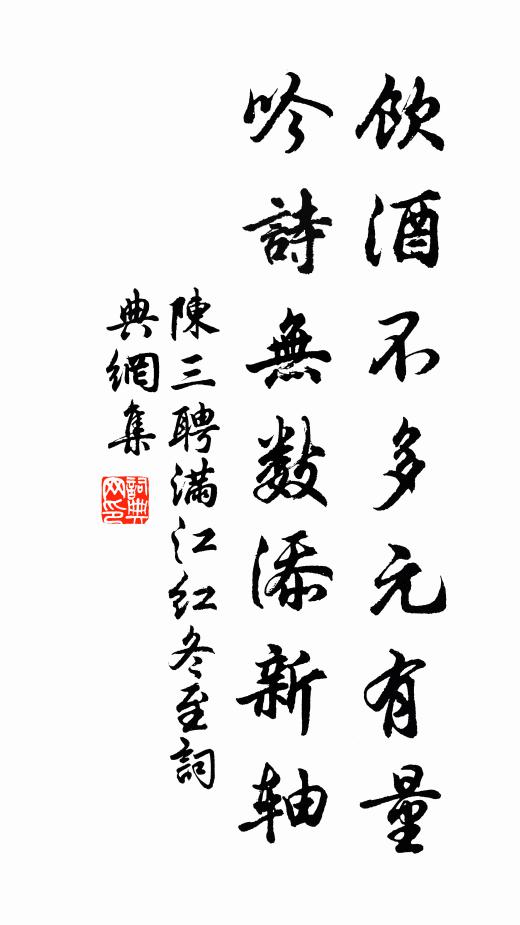 飲酒不多元有量
吟詩無數添新轴
陳三聘满江红冬至詞
典網集
詞典网印